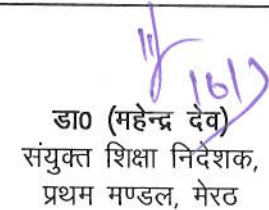 16/7
डा0 (महेन्द्र देव)
संयुक्त शिक्षा निदेशक,
प्रथम मण्डल, मेरठ